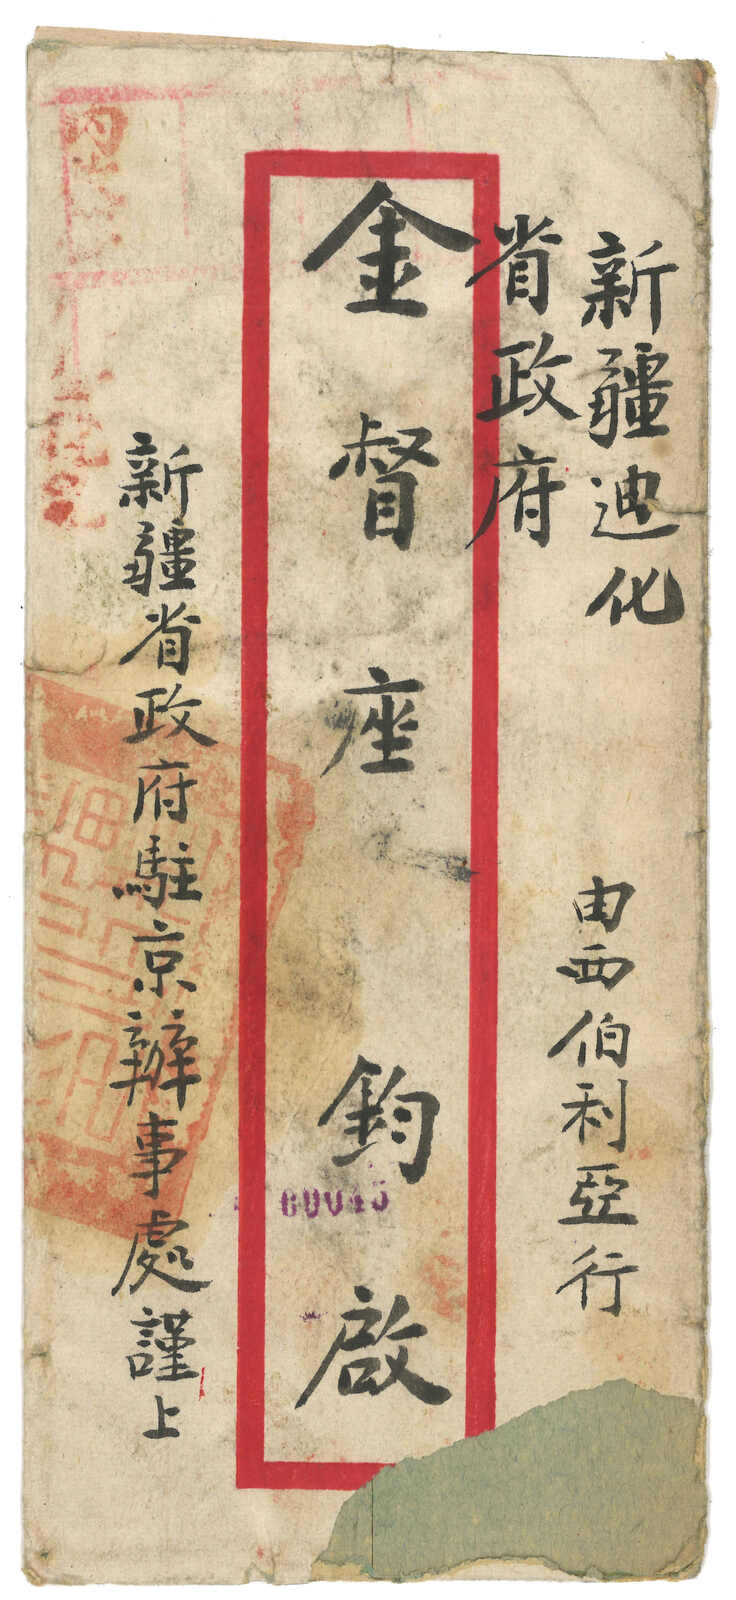 新疆迪化
省政府
由西伯利亞行
金督座鈞啟
60045
新疆省政府駐京辦事處謹上